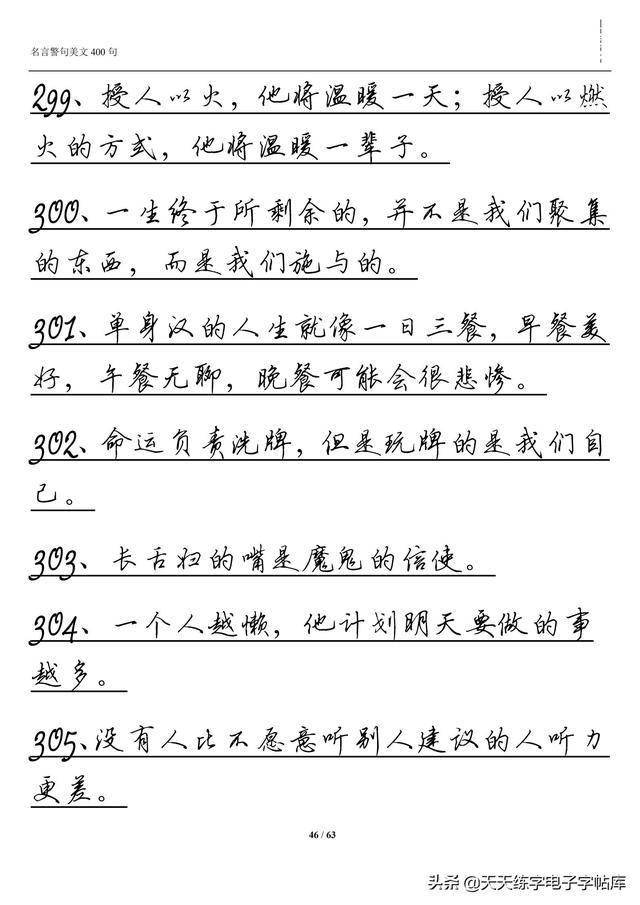 名言警句美文 400 句
299、授人以火，他将温暖一天；授人以燃
火的方式，他将温暖一辈子。
300、一生终于所剩余的，并不是我们聚集
的东西，而是我们施与的。
301、单身汉的人生就像一日三餐，早餐美
好，午餐无聊，晚餐可能会很悲惨。
302、命运负责洗牌，但是玩牌的是我们自
己。
303、长舌妇的嘴是魔鬼的信使。
304、一个人越懒，他计划明天要做的事
越多。
305、没有人比不愿意听别人建议的人听力
更差。
46 / 63
头条 @天天练字电子字帖库